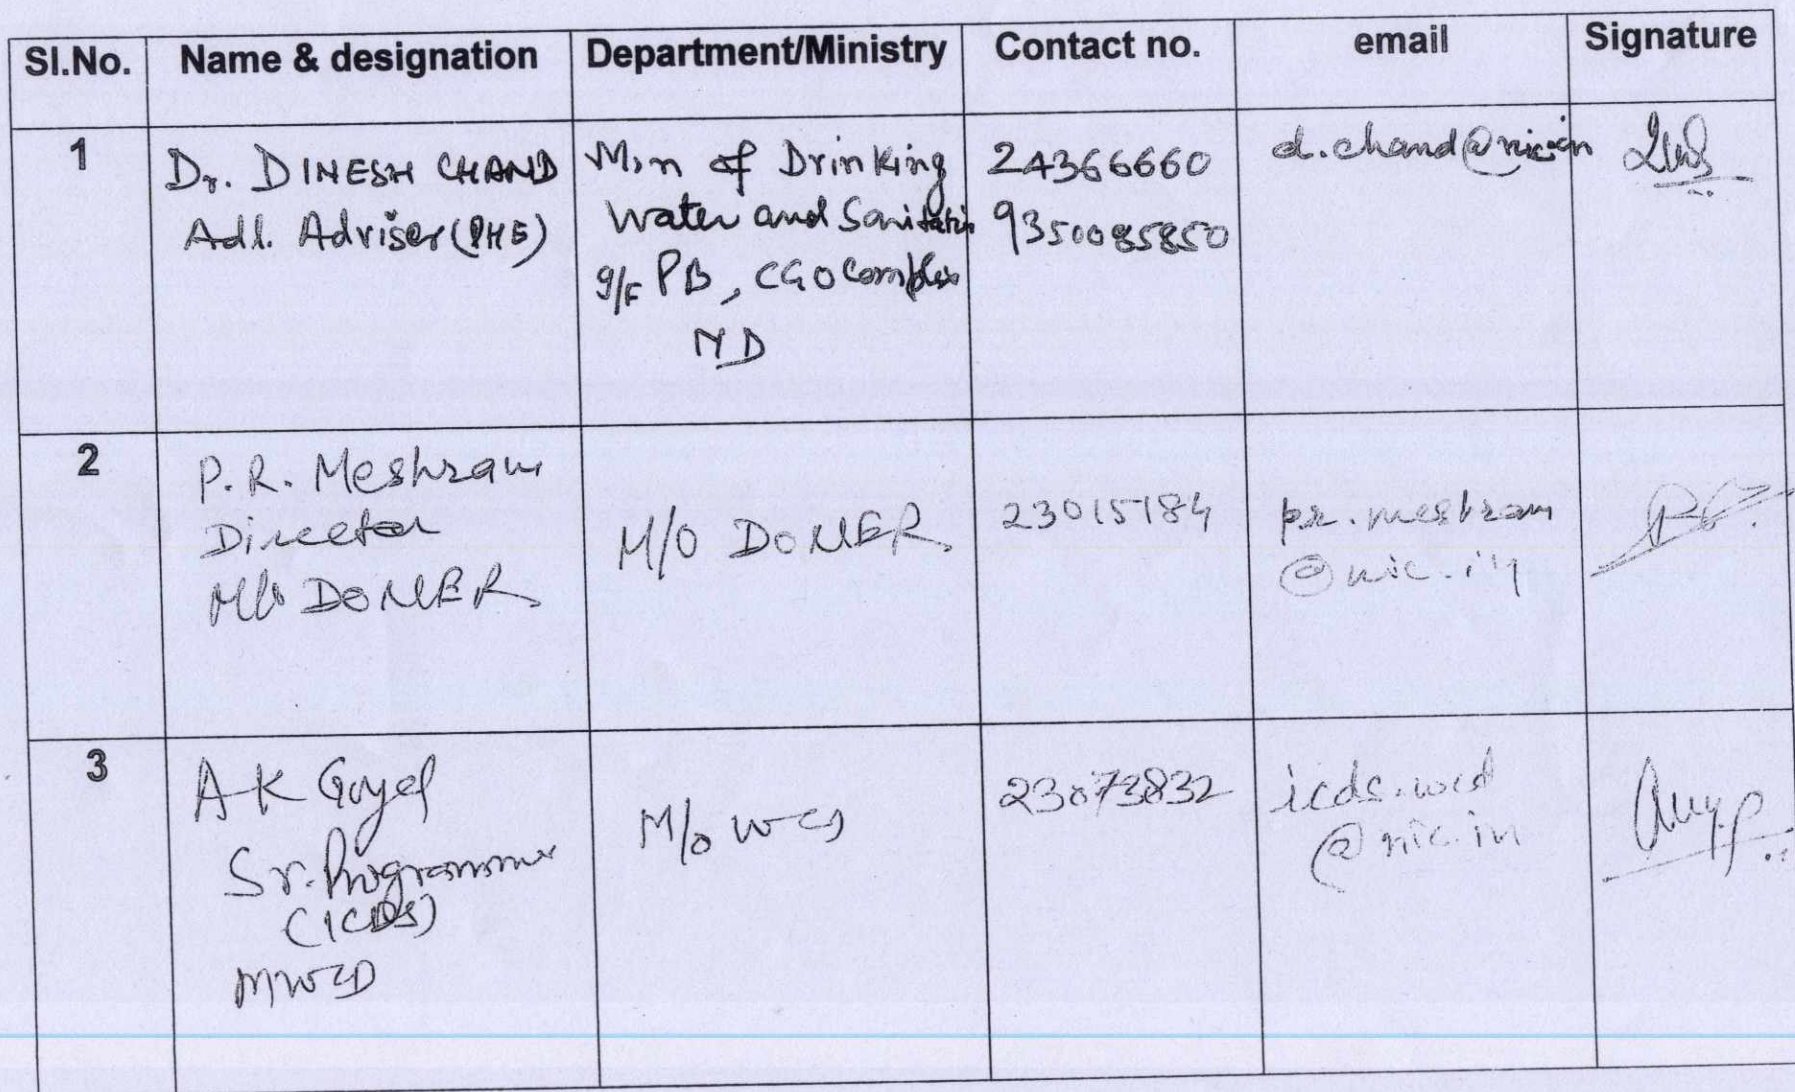 Sl.No. Name & designation Department/Ministry Contact no. email Signature
1
Dr. DINESH CHAND
Adl. Adviser (PHE)
Min of Drinking
Water and Sanitation
g/F PB, CGO Complex
ND
24366660
9350085850
d.chand@nic.in
2
P.R. Meshram
Director
M/o DONER
M/O DONER
23015184
pr.meshram
@nic.in
3
A K Goyel
Sr. Programmer
(ICDS)
MWCD
M/o WCD
23073832
icds.wcd
@nic.in